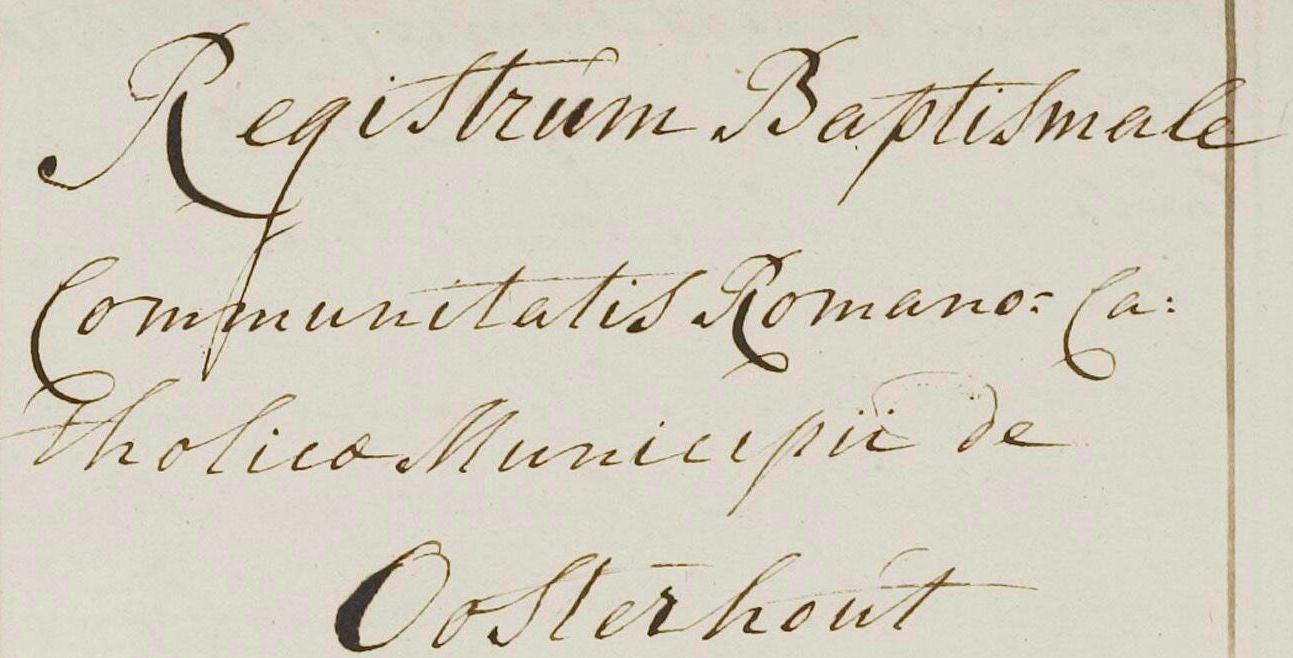 Registrum Baptismale
Communitatis Romano= Ca:
tholicæ Municipii de
Oosterhout